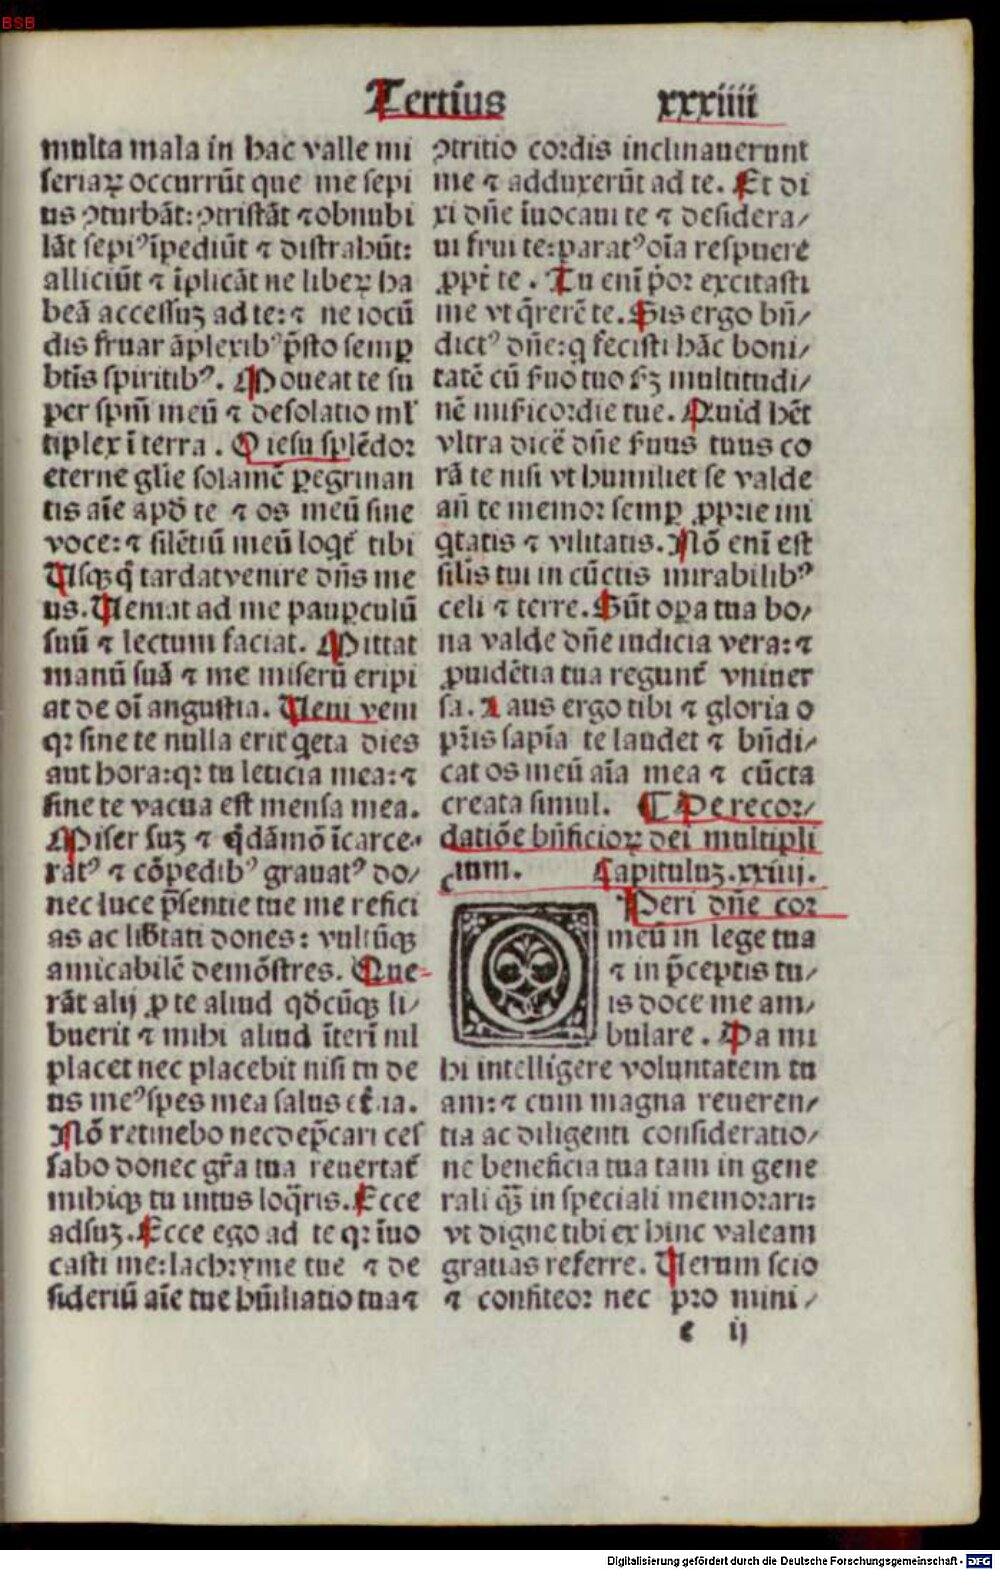 BSB
Tertius xxxiiii
multa mala in hac valle mi
seriaꝝ occurrūt que me sepi
us ꝯturbāt: ꝯtristāt ⁊ obnubi
lāt sepiꝰ īpediūt ⁊ distrahūt:
alliciūt ⁊ īplicāt ne libeꝝ ha
beā accessuꝫ ad te: ⁊ ne iocū
dis fruar āplexibꝰ p̄sto semꝑ
btīs spiritibꝰ. Moueat te su
per spm̄ meū ⁊ desolatio ml̕
tiplex ī terra. O iesu splēdor
eterne glīe solamē ꝑegrinan
tis aīe apd̄ te ⁊ os meū sine
voce: ⁊ silētiū meū loqt̄ tibi
Usqꝫ q̄ tardat venire dn̄s me
us. Ueniat ad me pauꝑculū
suū ⁊ lectum faciat. Mittat
manū suā ⁊ me miserū eripi
at de oī angustia. Ueni veni
qꝛ sine te nulla erit q̇eta dies
aut hora: qꝛ tu leticia mea: ⁊
sine te vacua est mensa mea.
Miser suꝫ ⁊ q̇dāmō īcarce⸗
ratꝰ ⁊ cōpedibꝰ grauatꝰ do/
nec luce p̄sentie tue me refici
as ac lib̄tati dones: vultūqꝫ
amicabilē demōstres. Que⸗
rāt alij ꝓ te aliud qd̄cūqꝫ li/
buerit ⁊ mihi aliud īterī nil
placet nec placebit nisi tu de
us meꝰ spes mea salus et̄na.
Nō retinebo nec dep̄cari ces
sabo donec gr̄a tua reuertat̄
mihiqꝫ tu intus loq̄ris. Ecce
adsuꝫ. Ecce ego ad te qꝛ īuo
casti me: lachryme tue ⁊ de
sideriū aīe tue hūiliatio tua ⁊
ꝯtritio cordis inclinauerunt
me ⁊ adduxerūt ad te. Et di
xi dn̄e īuocaui te ⁊ desidera/
ui frui te: paratꝰ oīa respuere
ꝓpt̄ te. Tu enī p̄or excitasti
me vt q̄rerē te. Sis ergo bn̄/
dictꝰ dn̄e: q̇ fecisti hāc boni/
tatē cū s̄uo tuo s̄ꝫ multitudi/
nē mīsericordie tue. Quid hēt
vltra dicē dn̄e s̄uus tuus co
rā te nisi vt humiliet se valde
an̄ te memor semꝑ ꝓprie ini
q̇tatis ⁊ vilitatis. Nō enī est
silīs tui in cūctis mirabilibꝰ
celi ⁊ terre. Sūt oꝑa tua bo/
na valde dn̄e iudicia vera: ⁊
ꝓuidētia tua regunt̄ vniuer
sa. Laus ergo tibi ⁊ gloria o
pr̄is sapīa te laudet ⁊ bn̄di/
cat os meū aīa mea ⁊ cūcta
creata simul. ¶ De recor/
datiōe bn̄ficioꝝ dei multipli
cium. Capituluꝫ. xxiiij.
Peri dn̄e cor
meū in lege tua
⁊ in p̄ceptis tu/
is doce me am/
bulare. Da mi
hi intelligere voluntatem tu
am: ⁊ cum magna reueren/
tia ac diligenti consideratio/
ne beneficia tua tam in gene
rali qꝫ̄ in speciali memorari:
vt digne tibi ex hinc valeam
gratias referre. Uerum scio
⁊ confiteor nec pro mini/
e ij
Digitalisierung gefördert durch die Deutsche Forschungsgemeinschaft - DFG